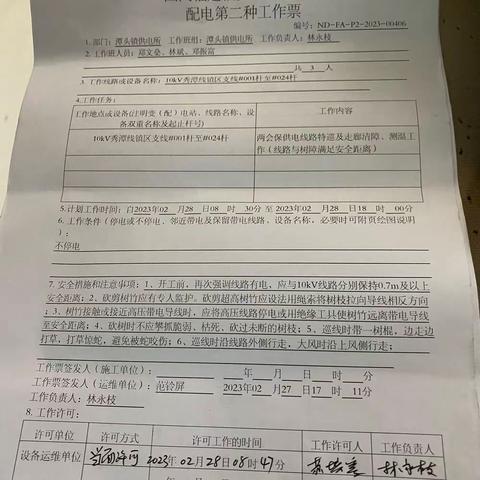 配电第二种工作票
编号: ND-FA-P2-2023-00406
1. 部门: 潭头镇供电所 工作班组: 潭头镇供电所 工作负责人: 林永枝
2. 工作班人员: 郑文燊、林斌、邓振富
共 3 人
3. 工作线路或设备名称: 10kV秀潭线镇区支线#001杆至#024杆
4.工作任务:
工作地点或设备(注明变（配）电站、线路名称、设备双重名称及起止杆号) 工作内容
10kV秀潭线镇区支线#001杆至#024杆 两会保供电线路特巡及走廊清障、测温工作（线路与树障满足安全距离）
5.计划工作时间: 自2023年02 月28日08 时 30分 至 2023年02 月28日18 时 00分
6. 工作条件（停电或不停电、邻近带电及保留带电线路、设备名称，必要时可附页绘图说明
）:
不停电
7. 安全措施和注意事项: 1、开工前，再次强调线路有电，应与10kV线路分别保持0.7m及以上
安全距离; 2、砍剪树竹应有专人监护。砍剪超高树竹应设法用绳索将树枝拉向导线相反方向
; 3、树竹接触或接近高压带电导线时，应将高压线路停电或用绝缘工具使树竹远离带电导线
至安全距离; 4、砍树时不应攀抓脆弱、枯死、砍过未断的树枝; 5、巡线时带一树棍，边走边
打草，打草惊蛇，避免被蛇咬伤; 6、巡线时沿线路外侧行走，大风时沿上风侧行走;
工作票签发人（施工单位）: 年 月 日 时 分
工作票签发人（运维单位）: 范铃屏 2023年02 月27 日17 时 11分
工作负责人: 林永枝
8. 工作许可:
许可单位 许可方式 许可工作的时间 工作许可人 工作负责人
设备运维单位 当面许可 2023年 02 月 28日 08 时 47分 林永枝